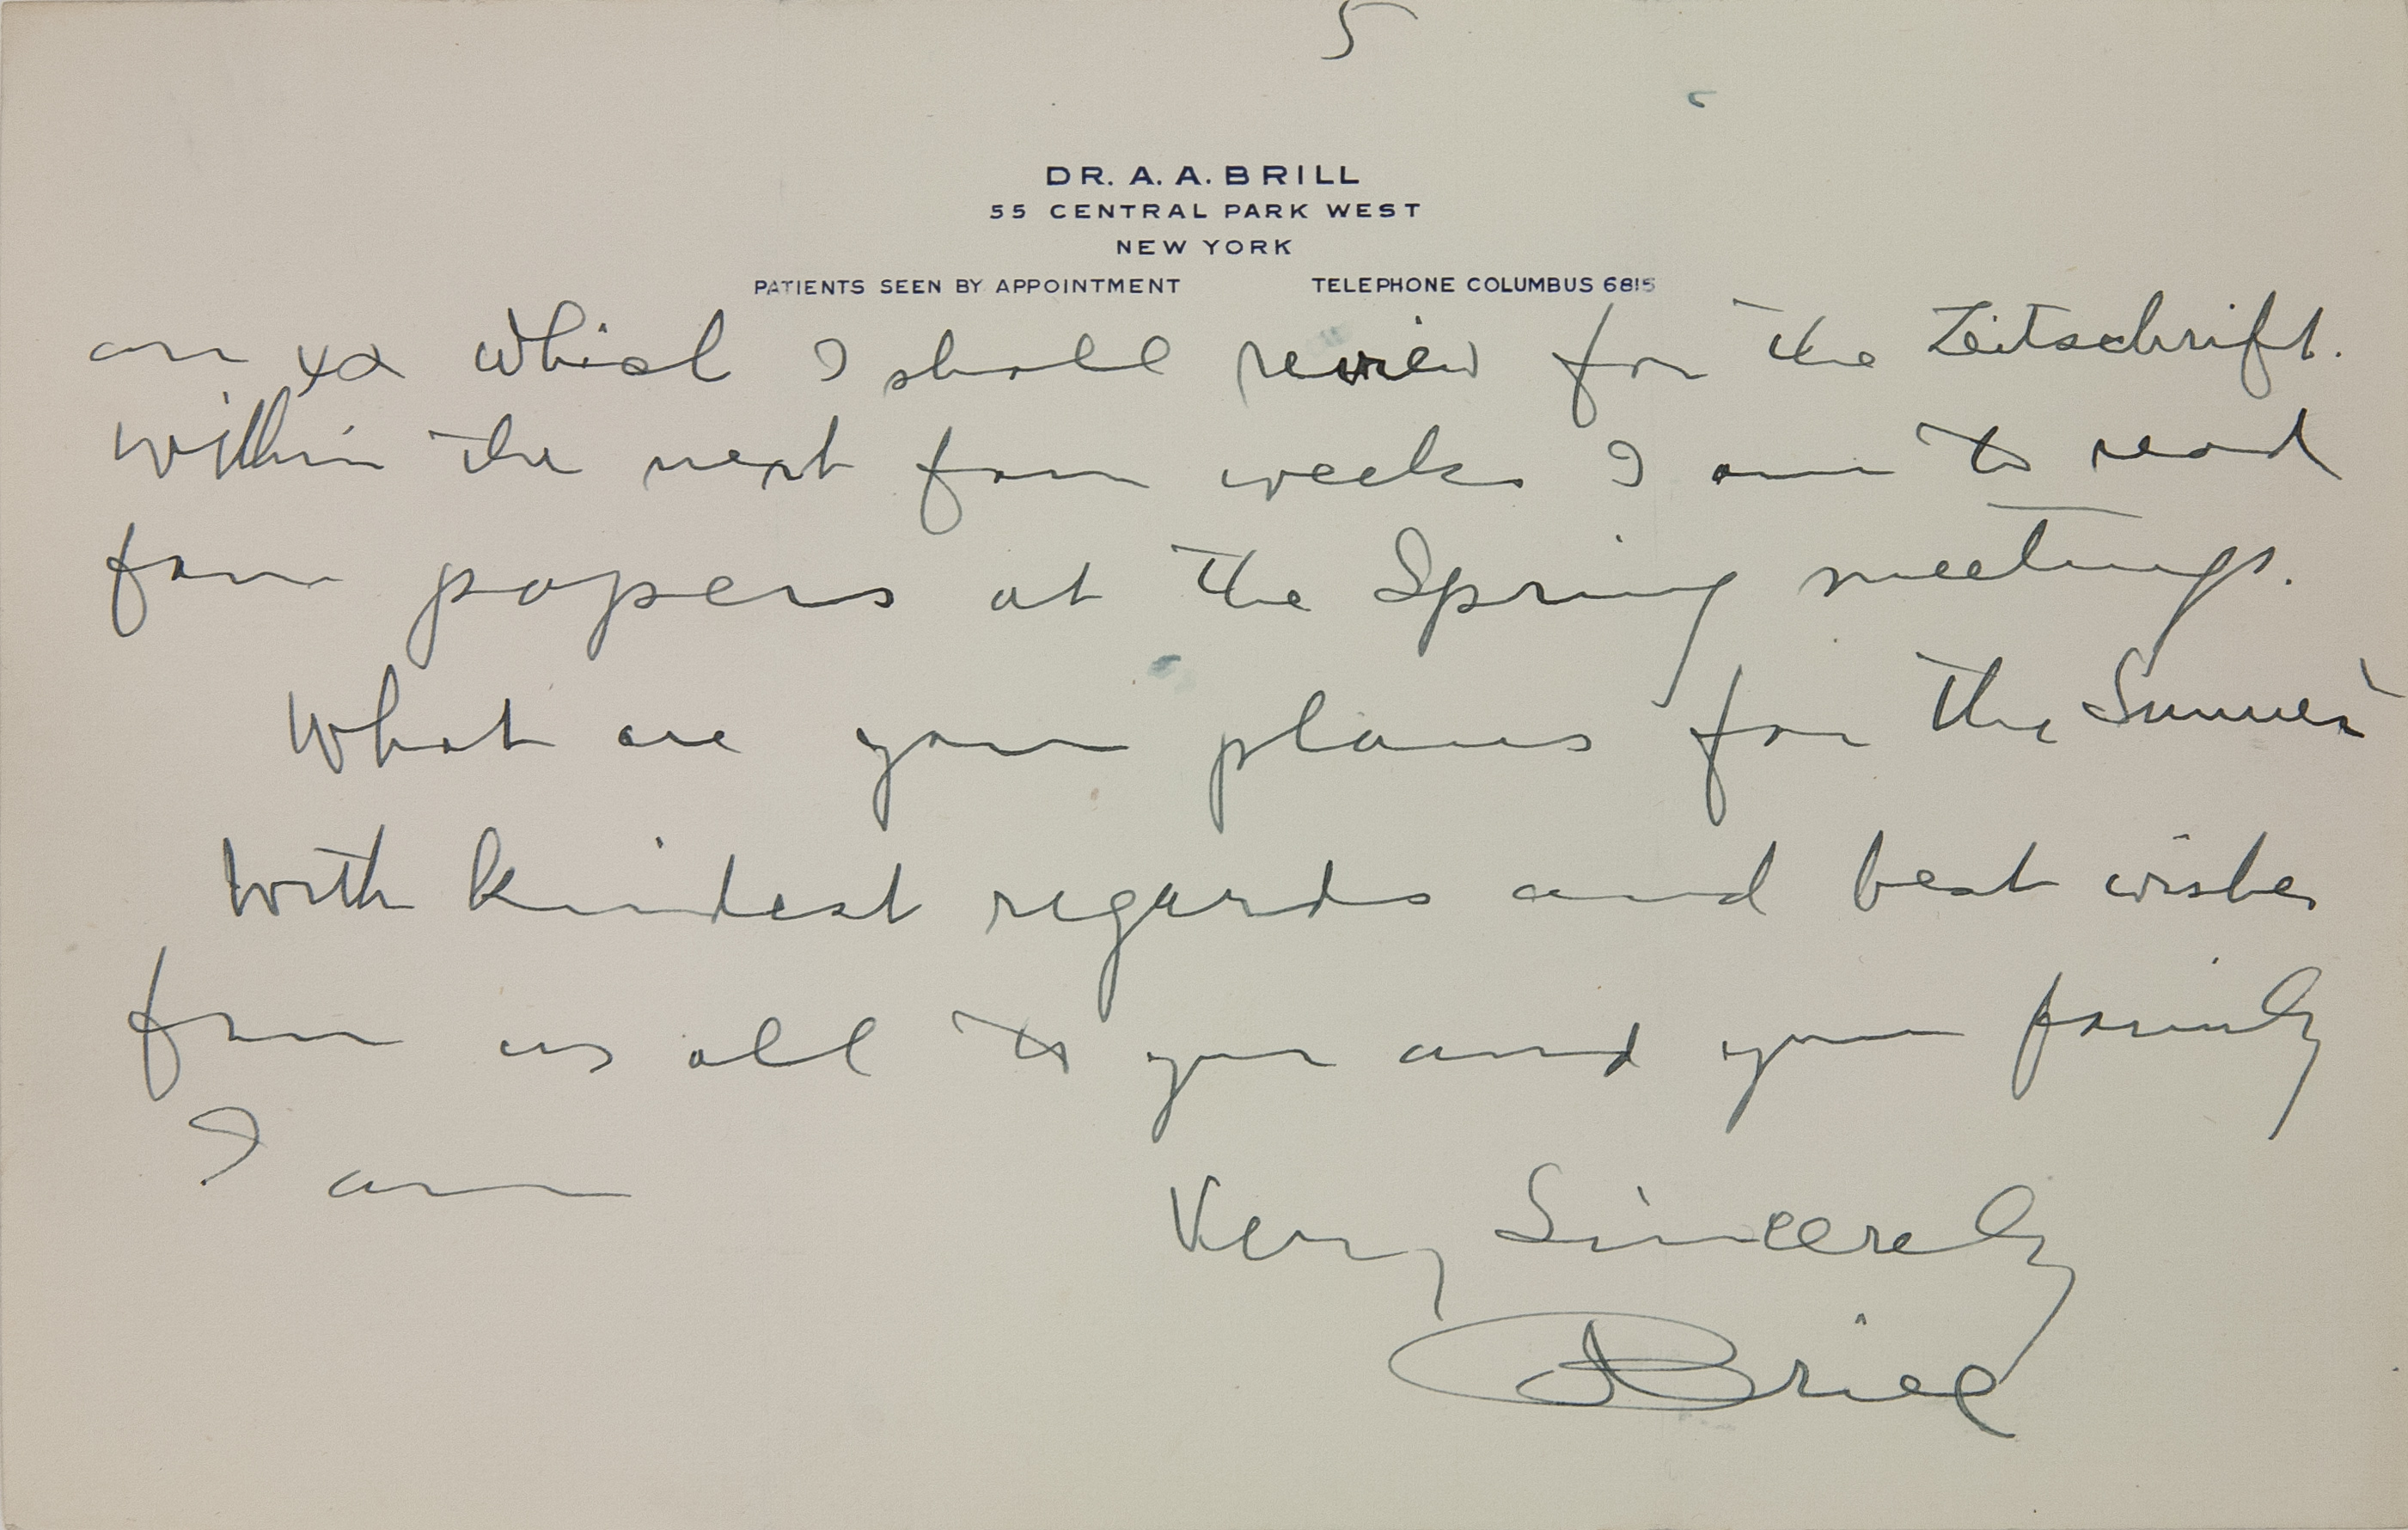 5
DR. A. A. BRILL
55 CENTRAL PARK WEST
NEW YORK
PATIENTS SEEN BY APPOINTMENT TELEPHONE COLUMBUS 6815
on which I shall review for the Zeitschrift.
Within the next four weeks I am to read
four papers at the Spring meetings.
What are your plans for the Summer?
With kindest regards and best wishes
from us all to you and your family
I am
Very Sincerely
Brill